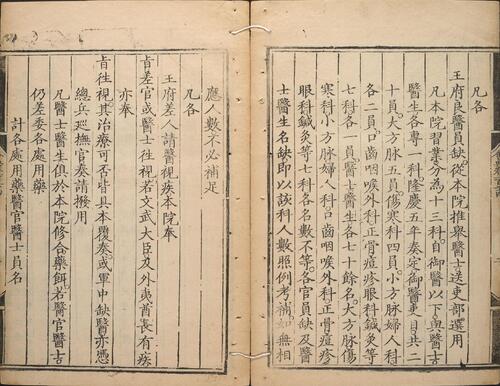 凡各
王府良醫員缺從本院推舉醫士送吏部選用
凡本院習業分為十三科自御醫以下與醫士
醫生各專一科隆慶五年奏定御醫吏目共二
十員大方脉五員傷寒科四員小方脉婦人科
各二員口齒咽喉外科正骨痘疹眼科鍼灸等
七科各一員醫士醫生各七十餘名大方脉傷
寒科小方脉婦人科口齒咽喉外科正骨痘疹
眼科鍼灸等七科各名數不等各官員缺及醫
士醫生名缺即以該科人數照例考補如無相
應人數不必補足
凡各
王府差人請醫視疾本院奉
旨差官或醫士徃視若文武大臣及外夷酋長有疾
亦奉
旨徃視其治療可否皆具本覆奏或軍中缺醫亦憑
總兵巡撫官奏請撥用
凡醫士醫生俱於本院修合藥餌若醫官醫士
仍差委各處用藥
計各處用藥醫官醫士員名